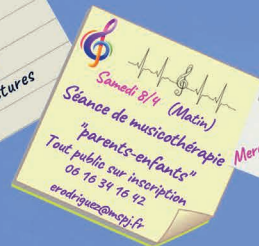 tures
Samedi 8/4 (Matin)
Séance de musicothérapie
"parents-enfants"
Tout public sur inscription
06 16 34 16 42
erodriguez@mspj.fr
Mer